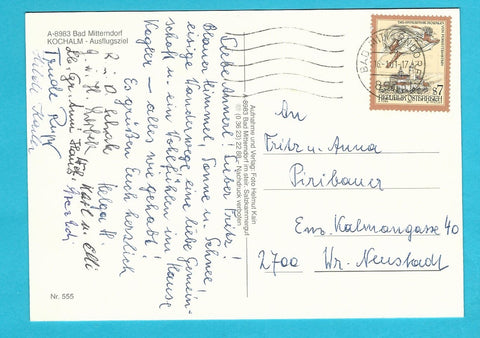 A-8983 Bad Mitterndorf
KOCHALM - Ausflugsziel
Liebe Annerl! Lieber Fritz!
Blauer Himmel, Sonne u. Schnee,
einsige Wanderwege, eine liebe Gemein-
schaft u. ein Wohlfühlen im Hause
Kogler – alles wie gehabt!
Es grüßen Euch herzlich
Helga H.
Karl u. Elli
Trude
Nr. 555
Aufnahme und Verlag: Foto Helmut Kain
A-8983 Bad Mitterndorf im steir. Salzkammergut
Nachdruck verboten
BAD MITTERNDORF
REPUBLIK ÖSTERREICH
S 7
An
Fritz u. Anna
Piribauer
Kalmangasse 40
2700 Wr. Neustadt